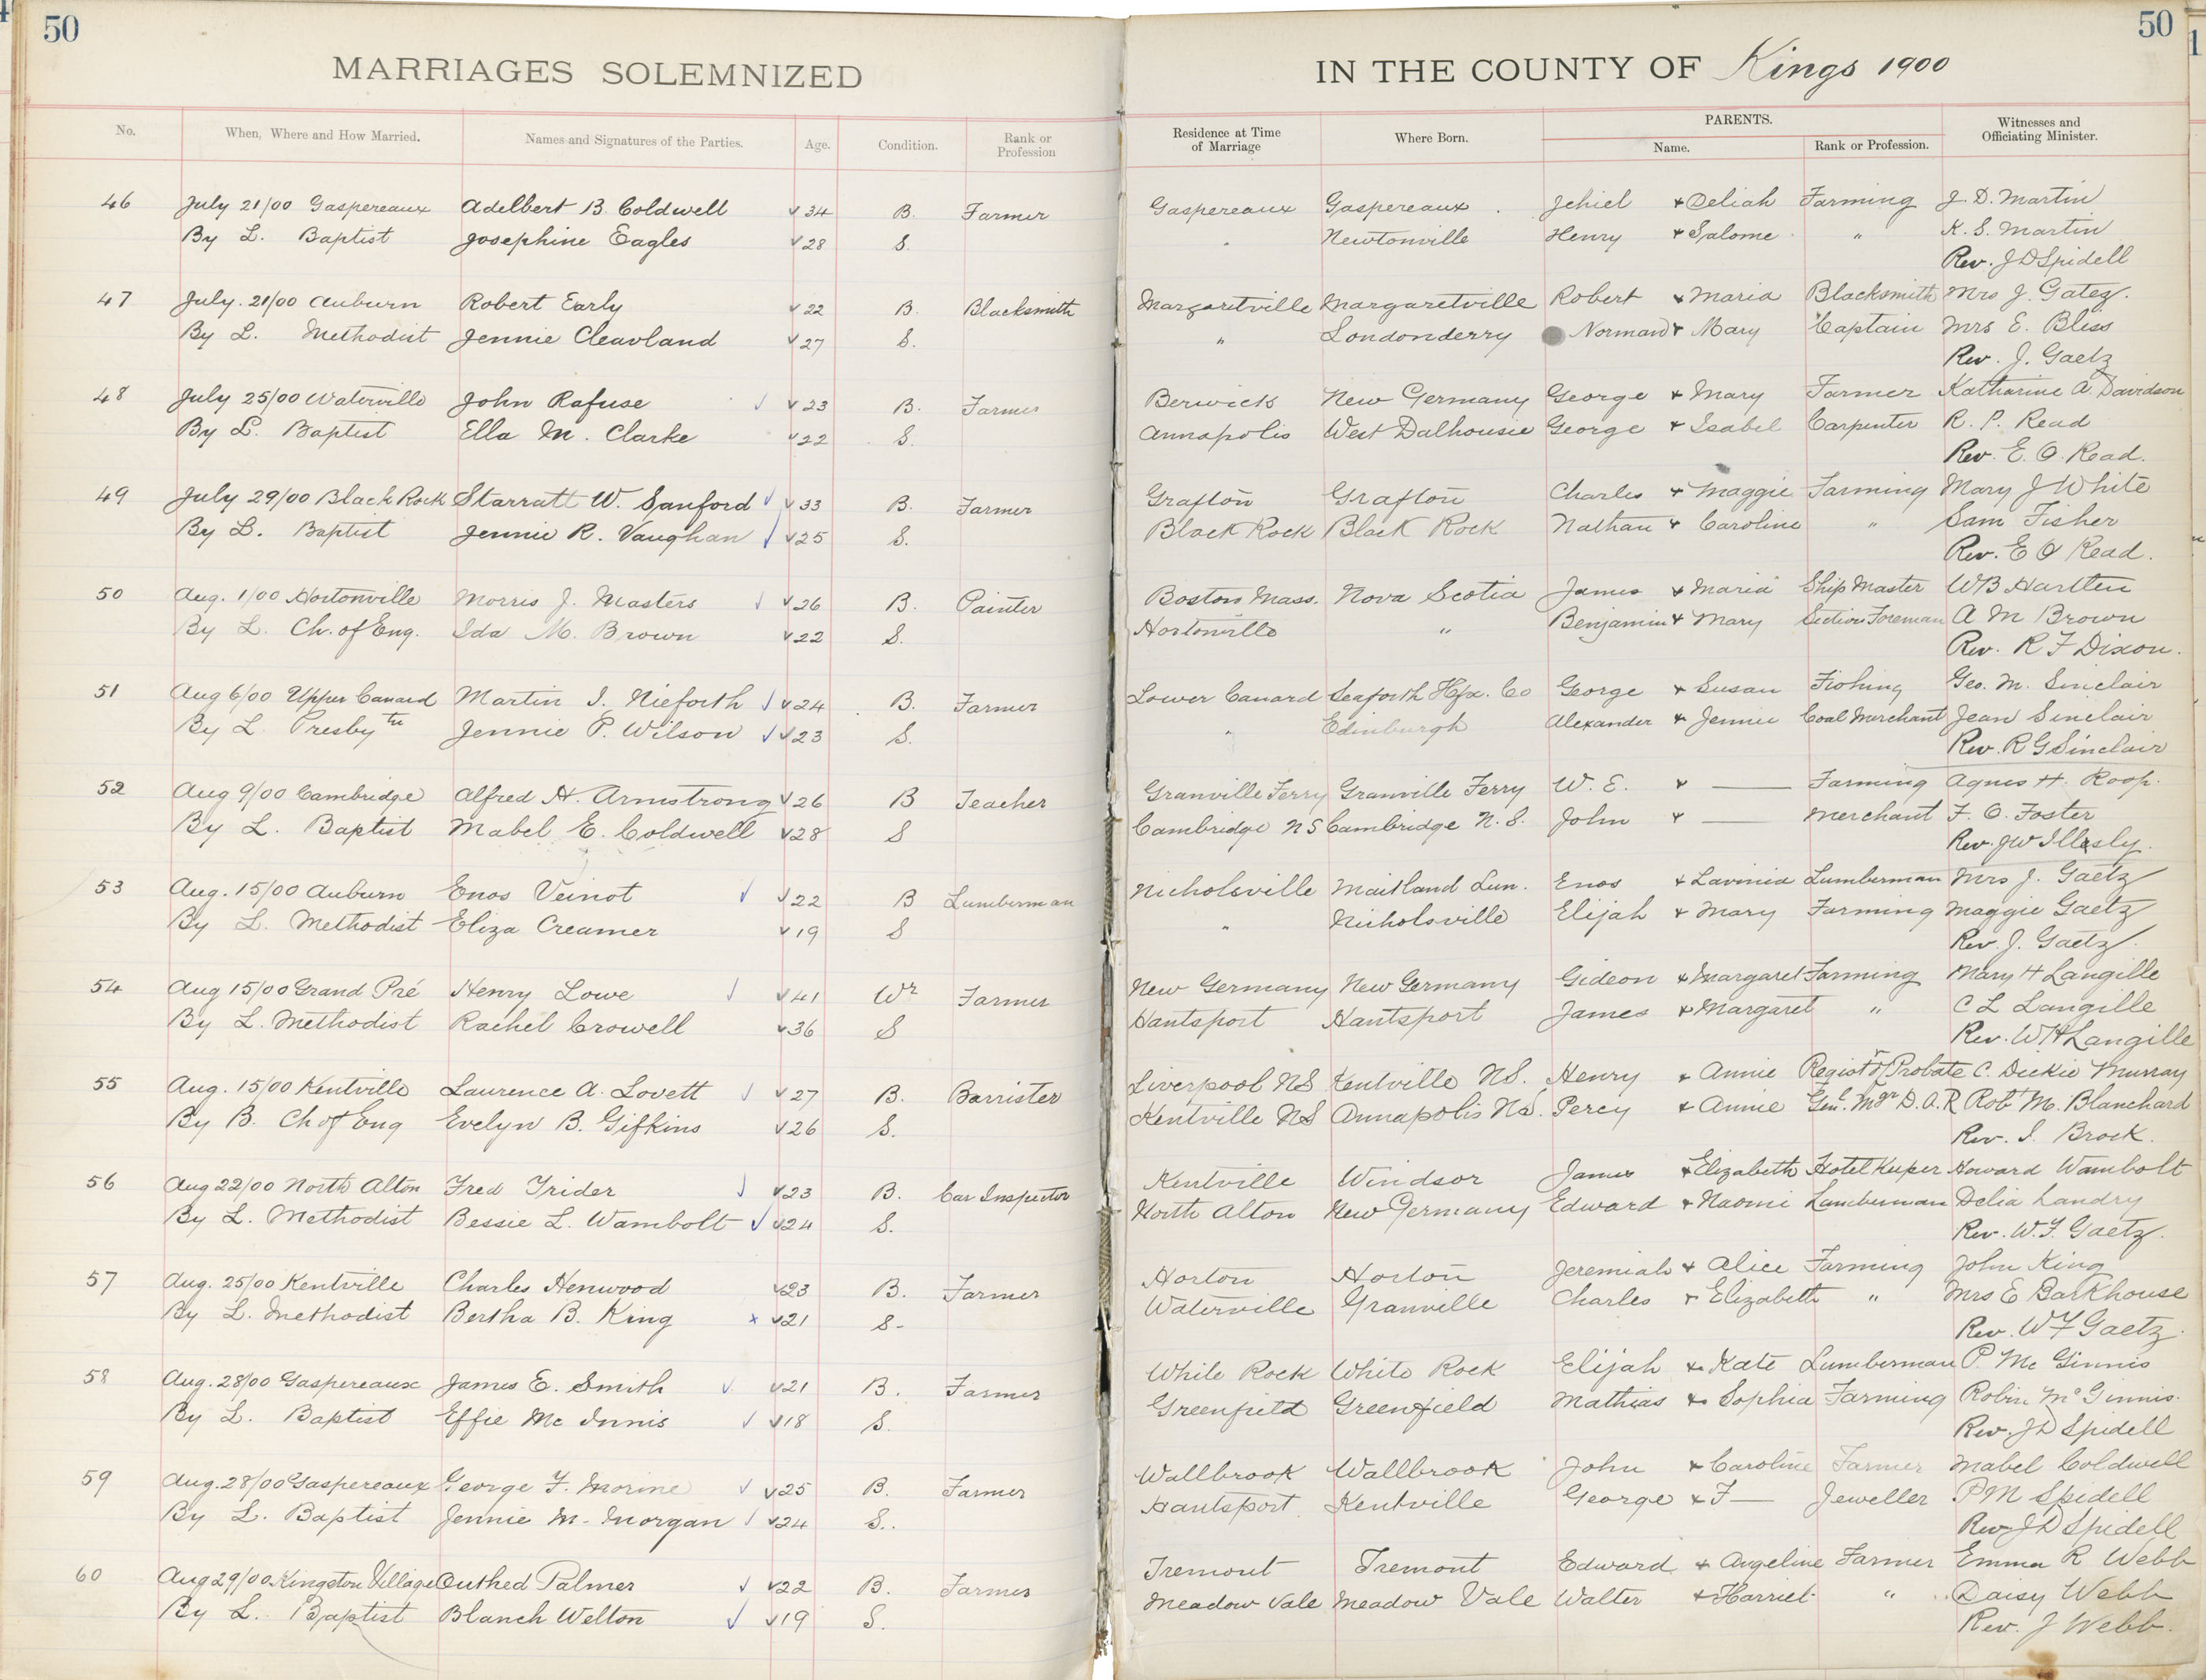 50
50
1
MARRIAGES SOLEMNIZED IN THE COUNTY OF Kings 1900
No. When, Where and How Married. Names and Signatures of the Parties. Age. Condition. Rank or Profession Residence at Time of Marriage Where Born. PARENTS. Name. Rank or Profession. Witnesses and Officiating Minister.
46 July 21/00 Gaspereaux Adelbert B. Coldwell 34 B. Farmer Gaspereaux Gaspereaux Jehiel & Deliah Farming J. D. Martin
By L. Baptist Josephine Eagles 28 S. " Newtonville Henry & Salome " K. S. Martin
Rev. J D Spidell
47 July. 21/00 Auburn Robert Early 22 B. Blacksmith Margaretville Margaretville Robert & Maria Blacksmith Mrs J. Gatez.
By L. Methodist Jennie Cleavland 27 S. " Londonderry Norman & Mary Captain Mrs E. Bliss
Rev. J. Gaetz
48 July 25/00 Waterville John Rafuse 23 B. Farmer Berwick New Germany George & Mary Farmer Katharine A. Davidson
By L. Baptist Ella M. Clarke 22 S. Annapolis West Dalhousie George & Isabel Carpenter R. P. Read
Rev. E. O. Read.
49 July 29/00 Black Rock Starratt W. Sanford 33 B. Farmer Grafton Grafton Charles & Maggie Farming Mary J White
By L. Baptist Jennie R. Vaughan 25 S. Black Rock Black Rock Nathan & Caroline " Sam Fisher
Rev. E O Read.
50 Aug. 1/00 Hortonville Morris J. Masters 26 B. Painter Boston Mass. Nova Scotia James & Maria Ship Master W B Hartlen
By L. Ch. of Eng. Ida M. Brown 22 S. Hortonville " Benjamin & Mary Section Foreman A M Brown
Rev. R F Dixon.
51 Aug 6/00 Upper Canard Martin I. Nieforth 24 B. Farmer Lower Canard Seaforth Hfx. Co George & Susan Fishing Geo. M. Sinclair
By L. Presbytn Jennie P. Wilson 23 S. " Edinburgh Alexander & Jennie Coal Merchant Jean Sinclair
Rev. R G Sinclair
52 Aug 9/00 Cambridge Alfred H. Armstrong 26 B Teacher Granville Ferry Granville Ferry W. E. & — Farming Agnes H. Roop.
By L. Baptist Mabel E. Coldwell 28 S Cambridge N S Cambridge N. S. John & — Merchant F. O. Foster
Rev. J W Illesly.
53 Aug. 15/00 Auburn Enos Veinot 22 B Lumberman Nicholsville Maitland Lun. Enos & Lavinia Lumberman Mrs J. Gaetz
By L. Methodist Eliza Creamer 19 S " Nicholsville Elijah & Mary Farming Maggie Gaetz
Rev. J. Gaetz.
54 Aug 15/00 Grand Pré Henry Lowe 41 Wr Farmer New Germany New Germany Gideon & Margaret Farming Mary H Langille
By L. Methodist Rachel Crowell 36 S Hantsport Hantsport James & Margaret " C L Langille
Rev. W H Langille
55 Aug. 15/00 Kentville Laurence A. Lovett 27 B. Barrister Liverpool NS Kentville NS. Henry & Annie Registr of Probate C. Dickie Murray
By B. Ch of Eng Evelyn B. Gifkins 26 S. Kentville NS Annapolis NS. Percy & Annie Genl. Mgr D. A. R Robt M. Blanchard
Rev. I. Brock.
56 Aug 22/00 North Alton Fred Trider 23 B. Car Inspector Kentville Windsor James & Elizabeth Hotel Keeper Howard Wambolt
By L. Methodist Bessie L. Wambolt 24 S. North Alton New Germany Edward & Naomi Lumberman Delia Landry
Rev. W. F. Gaetz.
57 Aug. 25/00 Kentville Charles Henwood 23 B. Farmer Horton Horton Jeremiah & Alice Farming John King
By L. Methodist Bertha B. King x 21 S- Waterville Granville Charles & Elizabeth " Mrs E Barkhouse
Rev. W F Gaetz.
58 Aug. 28/00 Gaspereaux James E. Smith 21 B. Farmer White Rock White Rock Elijah & Kate Lumberman P. Mc Ginnis
By L. Baptist Effie Mc Innis 18 S. Greenfield Greenfield Mathias & Sophia Farming Robin McGinnis.
Rev. J D Spidell
59 Aug. 28/00 Gaspereaux George F. Morine 25 B. Farmer Wallbrook Wallbrook John & Caroline Farmer Mabel Coldwell
By L. Baptist Jennie M. Morgan 24 S. Hantsport Kentville George & F— Jeweller P M Spidell
Rev J D Spidell
60 Aug 29/00 Kingston Village Outhed Palmer 22 B. Farmer Tremont Tremont Edward & Angeline Farmer Emma R Webb
By L. Baptist Blanch Welton 19 S. Meadow Vale Meadow Vale Walter & Harriet " Daisy Webb
Rev. J Webb.